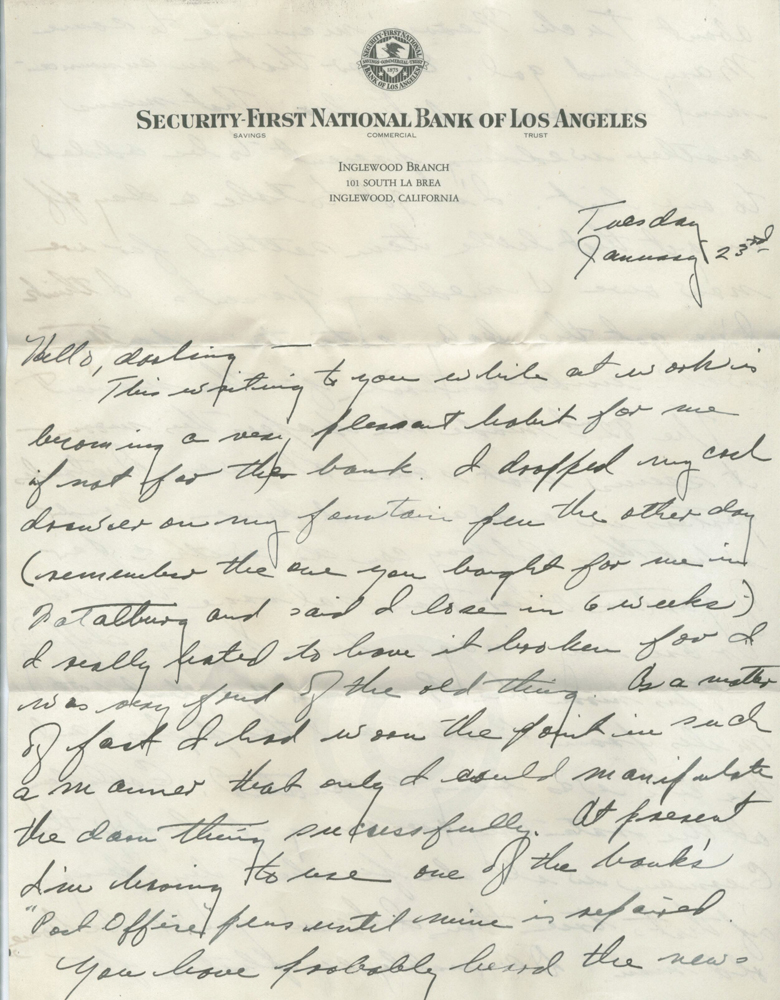 SECURITY-FIRST NATIONAL BANK OF LOS ANGELES
SAVINGS COMMERCIAL TRUST
INGLEWOOD BRANCH
101 SOUTH LA BREA
INGLEWOOD, CALIFORNIA
Tuesday
January 23rd
Hello, darling —
This writing to you while at work is
becoming a very pleasant habit for me
if not for the bank. I dropped my cash
drawer on my fountain pen the other day
(remember the one you bought for me in
and said I lose in 6 weeks)
I really hated to have it broken for I
was very fond of the old thing. As a matter
of fact I had worn the point in such
a manner that only I could manipulate
the darn thing successfully. At present
I'm having to use one of the bank's
"Post Office" pens until mine is repaired.
You have probably heard the news